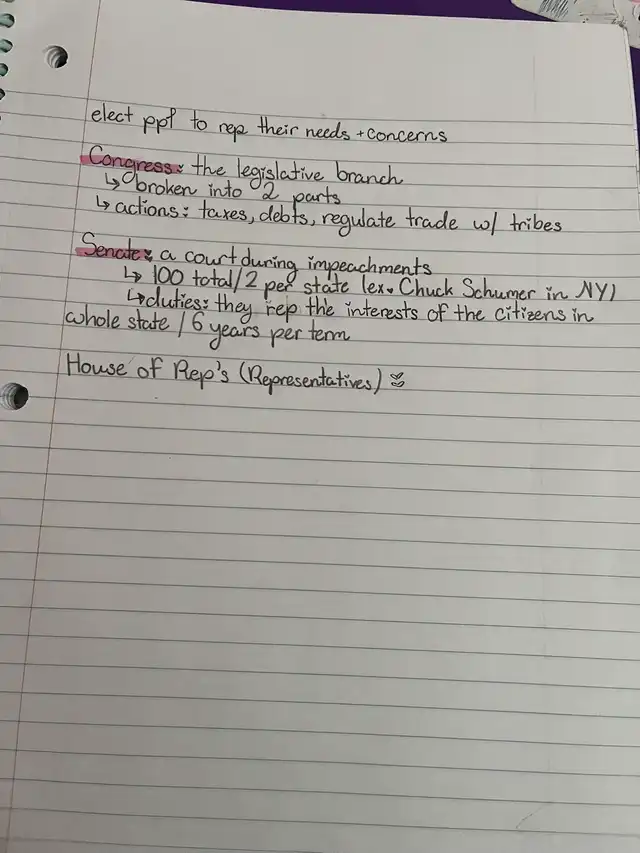 elect ppl to rep their needs + concerns
Congress: the legislative branch
↳ broken into 2 parts
↳ actions: taxes, debts, regulate trade w/ tribes
Senate: a court during impeachments
↳ 100 total/2 per state (ex. Chuck Schumer in NY)
↳ duties: they rep the interests of the citizens in
whole state / 6 years per term
House of Rep's (Representatives)